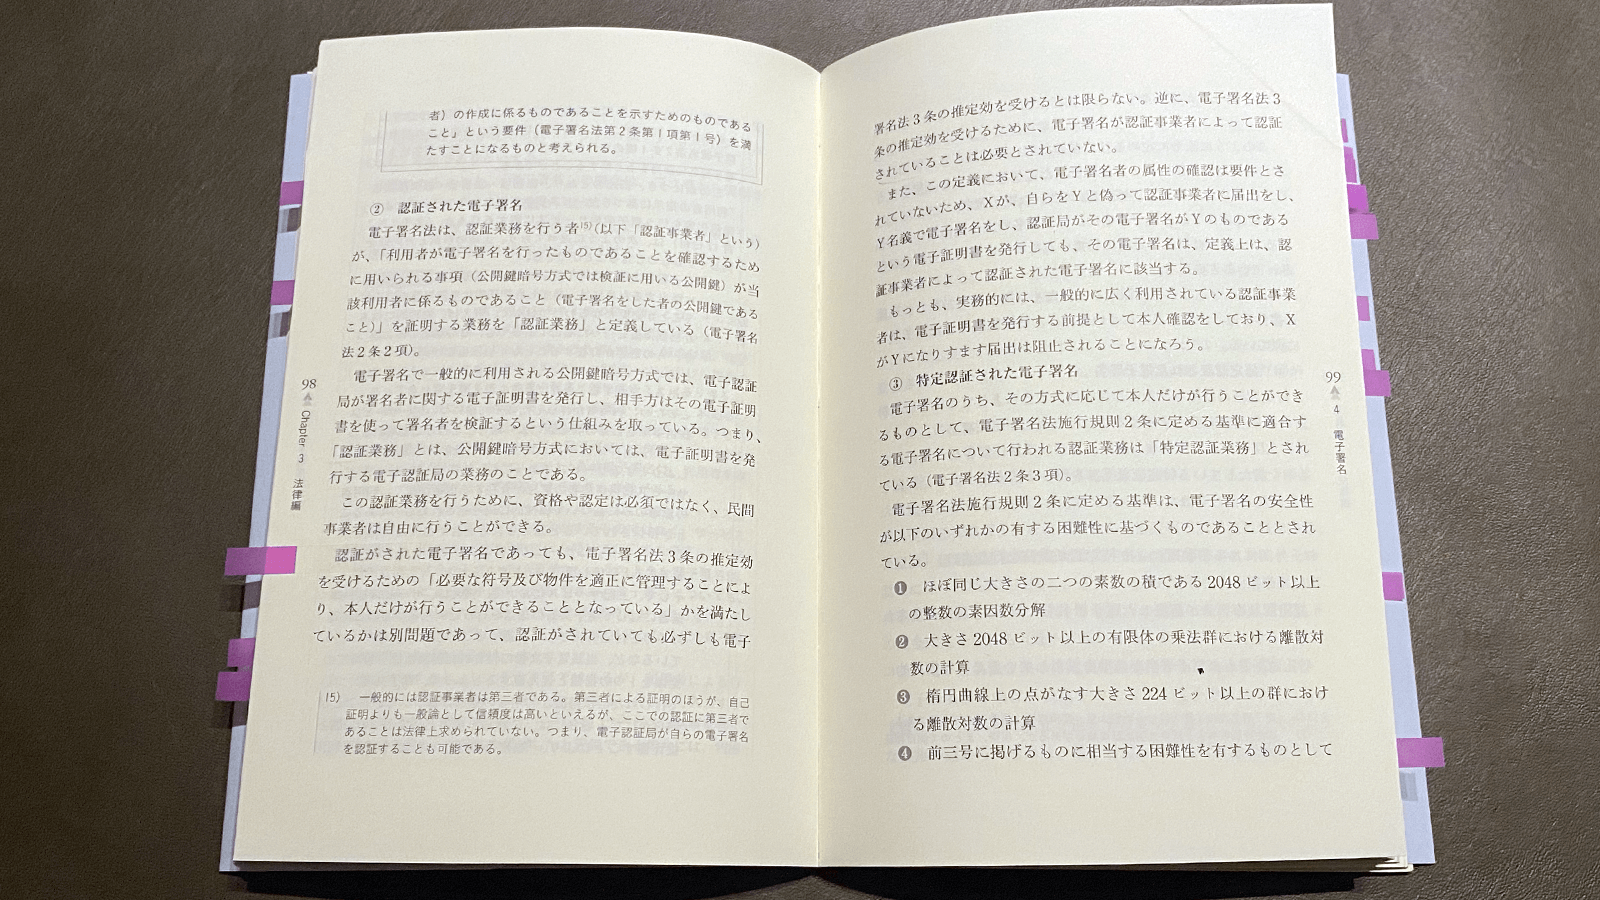 者）の作成に係るものであることを示すためのものである
こと」という要件（電子署名法第２条第１項第１号）を満
たすことになるものと考えられる。
② 認証された電子署名
電子署名法は、認証業務を行う者15)（以下「認証事業者」という）
が、「利用者が電子署名を行ったものであることを確認するため
に用いられる事項（公開鍵暗号方式では検証に用いる公開鍵）が当
該利用者に係るものであること（電子署名をした者の公開鍵である
こと）」を証明する業務を「認証業務」と定義している（電子署名
法２条２項）。
電子署名で一般的に利用される公開鍵暗号方式では、電子認証
局が署名者に関する電子証明書を発行し、相手方はその電子証明
書を使って署名者を検証するという仕組みを取っている。つまり、
「認証業務」とは、公開鍵暗号方式においては、電子証明書を発
行する電子認証局の業務のことである。
この認証業務を行うために、資格や認定は必須ではなく、民間
事業者は自由に行うことができる。
認証がされた電子署名であっても、電子署名法３条の推定効
を受けるための「必要な符号及び物件を適正に管理することによ
り、本人だけが行うことができることとなっている」かを満たし
ているかは別問題であって、認証がされていても必ずしも電子
15) 一般的には認証事業者は第三者である。第三者による証明のほうが、自己
証明よりも一般論として信頼度は高いといえるが、ここでの認証に第三者で
あることは法律上求められていない。つまり、電子認証局が自らの電子署名
を認証することも可能である。
98
Chapter 3 法律編
署名法３条の推定効を受けるとは限らない。逆に、電子署名法３
条の推定効を受けるために、電子署名が認証事業者によって認証
されていることは必要とされていない。
また、この定義において、電子署名者の属性の確認は要件とさ
れていないため、Ｘが、自らをＹと偽って認証事業者に届出をし、
Ｙ名義で電子署名をし、認証局がその電子署名がＹのものである
という電子証明書を発行しても、その電子署名は、定義上は、認
証事業者によって認証された電子署名に該当する。
もっとも、実務的には、一般的に広く利用されている認証事業
者は、電子証明書を発行する前提として本人確認をしており、Ｘ
がＹになりすます届出は阻止されることになろう。
③ 特定認証された電子署名
電子署名のうち、その方式に応じて本人だけが行うことができ
るものとして、電子署名法施行規則２条に定める基準に適合す
る電子署名について行われる認証業務は「特定認証業務」とされ
ている（電子署名法２条３項）。
電子署名法施行規則２条に定める基準は、電子署名の安全性
が以下のいずれかの有する困難性に基づくものであることとされ
ている。
❶ ほぼ同じ大きさの二つの素数の積である2048ビット以上
の整数の素因数分解
❷ 大きさ2048ビット以上の有限体の乗法群における離散対
数の計算
❸ 楕円曲線上の点がなす大きさ224ビット以上の群におけ
る離散対数の計算
❹ 前三号に掲げるものに相当する困難性を有するものとして
99
4 電子署名